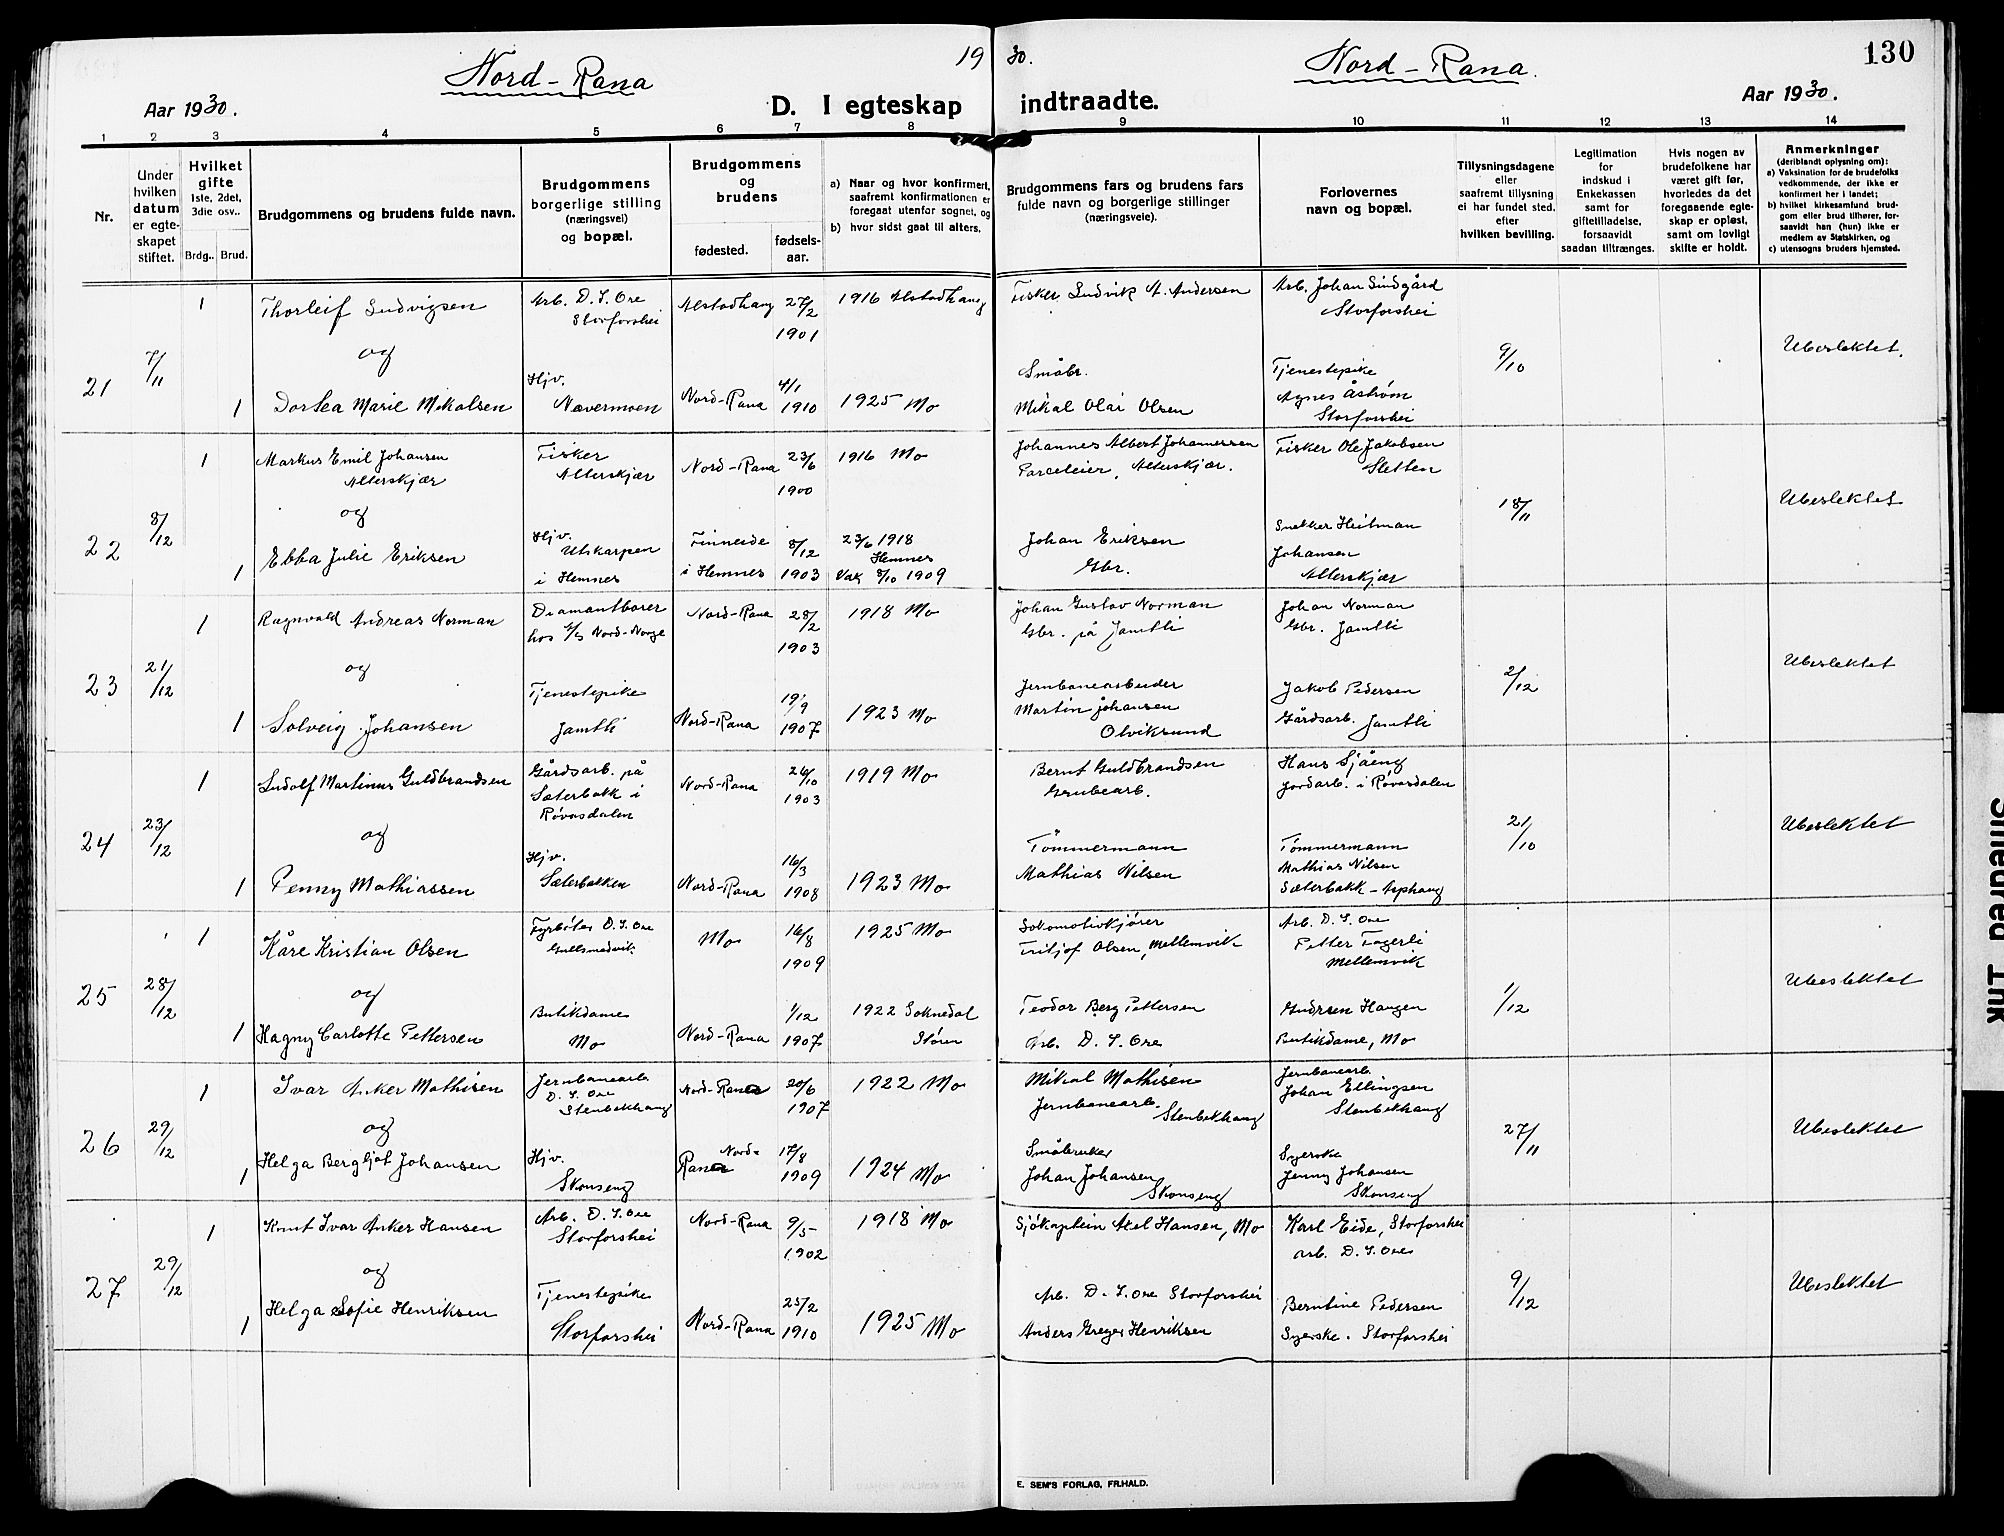 Nord-Rana
19
30.
Nord-Rana.
130
Aar 1930.
D. I egteskap
indtraadte.
Aar 1930.
1 2 3 4 5 6 7 8 9 10 11 12 13 14
Nr.
Under
hvilken
datum
er egte-
skapet
stiftet.
Hvilket
gifte
1ste, 2det,
3die osv..
Brdg.. Brud.
Brudgommens og brudens fulde navn.
Brudgommens
borgerlige stilling
(næringsvei)
og bopæl.
Brudgommens
og
brudens
fødested.
fødsels-
aar.
a) Naar og hvor konfirmert,
saafremt konfirmationen er
foregaat utenfor sognet, og
b) hvor sidst gaat til alters.
Brudgommens fars og brudens fars
fulde navn og borgerlige stillinger
(næringsveie).
Forlovernes
navn og bopæl.
Tillysningsdagene
eller
saafremt tillysning
ei har fundet sted,
efter
hvilken bevilling.
Legitimation
for
indskud i
Enkekassen
samt for
giftetilladelse,
forsaavidt
saadan tiltrænges.
Hvis nogen av
brudefolkene har
været gift før,
hvorledes da det
foregaaende egte-
skap er opløst,
samt om lovligt
skifte er holdt.
Anmerkninger
(deriblandt oplysning om):
a) Vaksination for de brudefolks
vedkommende, der ikke er
konfirmert her i landet;
b) hvilket kirkesamfund brud-
gom eller brud tilhører, for-
saavidt han (hun) ikke er
medlem av Statskirken, og
c) utensogns bruders hjemsted.
21
7/11
1
Thorleif Ludvigsen
Arb. D. S. Ore
Storforshei
Alstadhaug
27/2
1901
1916 Alstadhaug
Fisker Ludvik A. Andersen
Arb. Johan Lindgård
Storforshei
og
1
Dortea Marie Mikalsen
Hjv.
Nævermoen
Nord-Rana
4/1
1910
1925 Mo
Småbr.
Mikal Olai Olsen
Tjenestepike
Agnes Åstrøm
Storforshei
9/10
Ubeslektet.
22
8/12
1
Markus Emil Johansen
Alterskjær
Fisker
Alterskjær
Nord-Rana
23/6
1900
1916 Mo
Johannes Albert Johannessen
Parceleier, Alterskjær.
Fisker Ole Jakobsen
Sletten
og
1
Ebba Julie Eriksen
Hjv.
Utskarpen
i Hemnes
Finneide
i Hemnes
8/12
1903
23/6 1918
Hemnes
Vax 8/10 1909
Johan Eriksen
Gbr.
Snekker
Johansen
Alterskjær
18/11
Ubeslektet
23
21/12
1
Ragnvald Andreas Norman
Diamantborer
hos A/S Nord-Norge
Nord-Rana
28/2
1903
1918 Mo
Johan Gustav Norman
Gbr. på Jamtli
Johan Norman
Gbr. Jamtli
og
1
Solveig Johansen
Tjenestepike
Jamtli
Nord-Rana
19/9
1907
1923 Mo
Jernbanearbeider
Martin Johansen
Olviksund
Jakob Pedersen
Gårdsarb. Jamtli
2/12
Ubeslektet
24
23/12
1
Ludolf Martinus Guldbrandsen
Gårdsarb. på
Sæterbakk i
Røvasdalen
Nord-Rana
26/10
1903
1919 Mo
Bernt Guldbrandsen
Grubearb.
Hans Sjåeng
jordarb. i Røvasdalen
og
1
Penny Mathiassen
Hjv.
Sæterbakken
Nord-Rana
16/3
1908
1923 Mo
Tømmermann
Mathias Nilsen
Tømmermann
Mathias Nilsen
Sæterbakk - Asphaug
21/10
Ubeslektet
25
28/12
1
Kåre Kristian Olsen
Fyrbøter D. S. Ore
Gullsmedvik
Mo
16/8
1909
1925 Mo
Lokomotivkjører
Fritjof Olsen, Mellemvik
Arb. D. S. Ore
Petter Fagerli
Mellemvik
og
1
Hagny Carlotte Pettersen
Butikdame
Mo
Nord-Rana
1/12
1907
1922 Soknedal
Støren
Teodor Berg Pettersen
Arb. D. S. Ore
Gudrun Haugen
Butikdame, Mo
1/12
Ubeslektet
26
29/12
1
Ivar Anker Mathisen
Jernbanearb.
D. S. Ore
Stenbekkhaug
Nord-Rana
20/6
1907
1922 Mo
Mikal Mathisen
Jernbanearb.
Stenbekhaug
Jernbanearb.
Johan Ellingsen
Stenbekhaug
og
1
Helga Bergljot Johansen
Hjv.
Skonseng
Nord-
Rana
17/8
1909
1924 Mo
Småbruker
Johan Johansen
Skonseng
Syerske
Jenny Johansen
Skonseng
27/11
Ubeslektet
27
29/12
1
Knut Ivar Anker Hansen
Arb. D. S. Ore
Storforshei
Nord-Rana
9/5-
1902
1918 Mo
Sjökaptein Axel Hansen, Mo
Karl Eide, Storforshei
arb. D. S. Ore
og
1
Helga Sofie Henriksen
Tjenestepike
Storforshei
Nord-Rana
25/2
1910
1925 Mo
Arb. D. S. Ore Storforshei
Anders Greger Henriksen
Berntine Pedersen
Syerske. Storforshei
9/12
Ubeslektet
E. SEM'S FORLAG, FR.HALD.